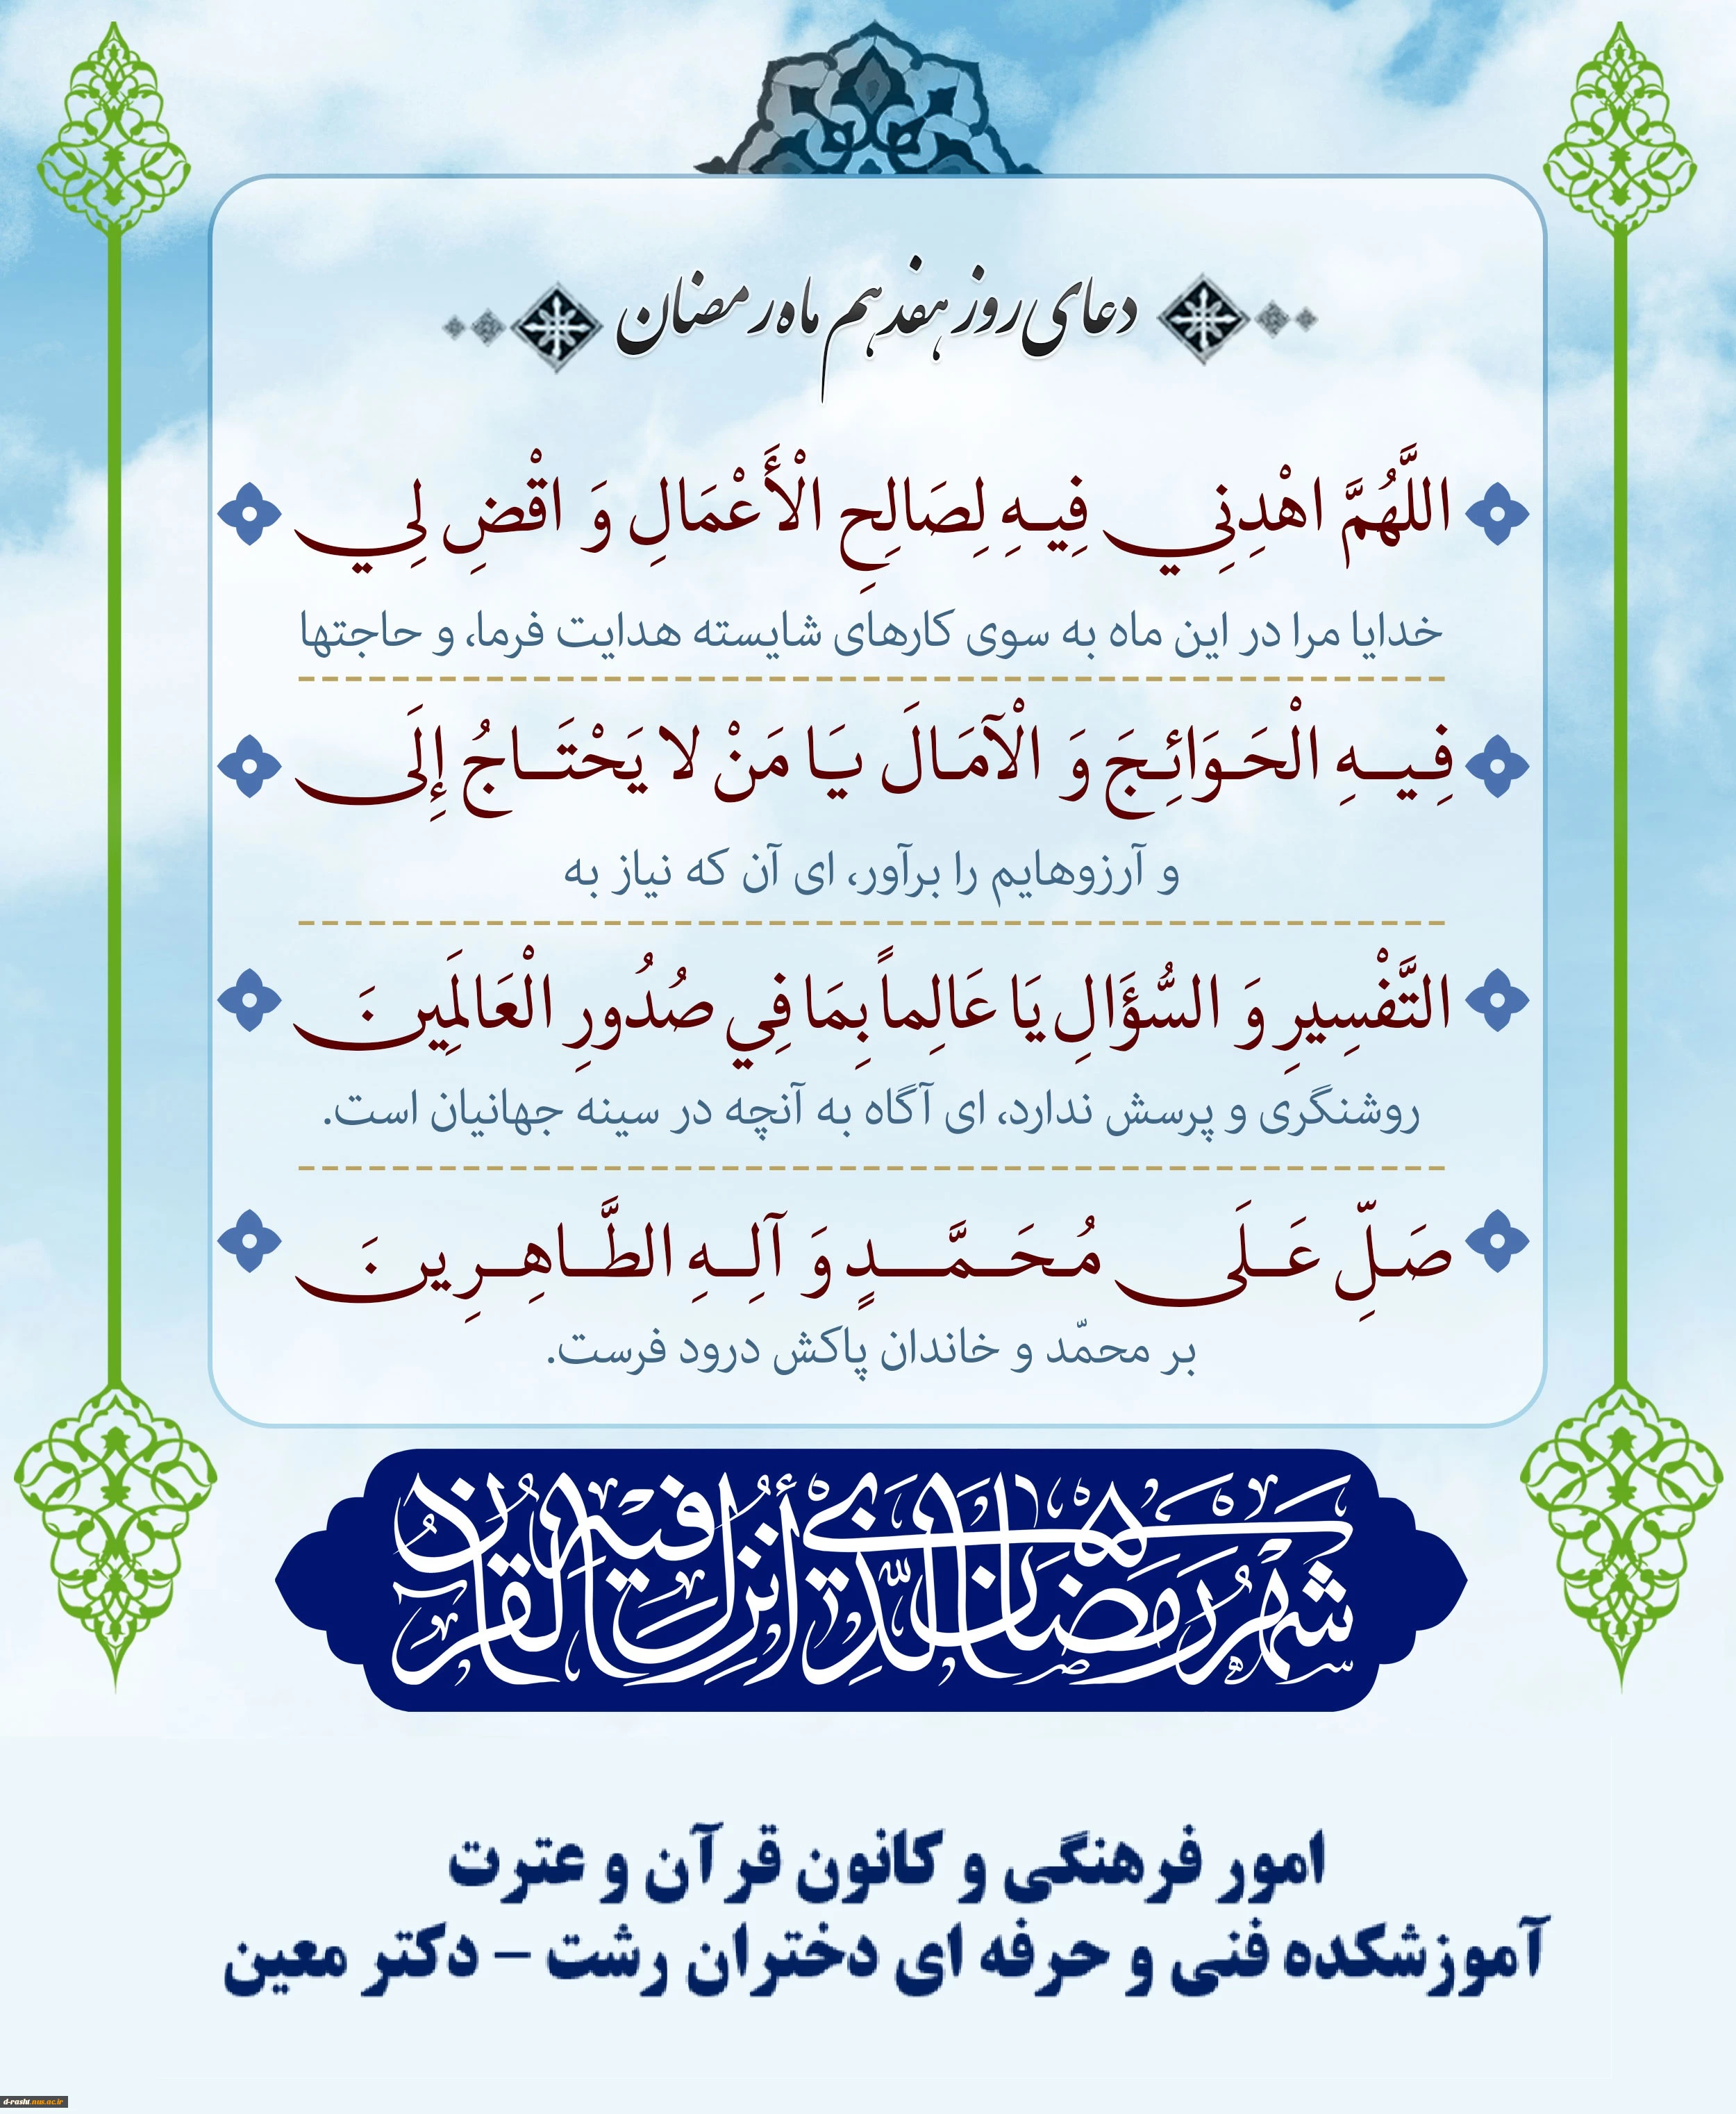 دعای روز هفدهم ماه رمضان
اللَّهُمَّ اهْدِنِي فِيهِ لِصَالِحِ الْأَعْمَالِ وَ اقْضِ لِي
خدایا مرا در این ماه به سوی کارهای شایسته هدایت فرما، و حاجتها
فِيهِ الْحَوَائِجَ وَ الْآمَالَ يَا مَنْ لا يَحْتَاجُ إِلَى
و آرزوهایم را برآور، ای آن که نیاز به
التَّفْسِيرِ وَ السُّؤَالِ يَا عَالِماً بِمَا فِي صُدُورِ الْعَالَمِينَ
روشنگری و پرسش ندارد، ای آگاه به آنچه در سینه جهانیان است.
صَلِّ عَلَى مُحَمَّدٍ وَ آلِهِ الطَّاهِرِينَ
بر محمّد و خاندان پاکش درود فرست.
شهر رمضان الذي أنزل فيه القرآن
امور فرهنگی و کانون قرآن و عترت
آموزشکده فنی و حرفه ای دختران رشت – دکتر معین
d-rasht.nus.ac.ir